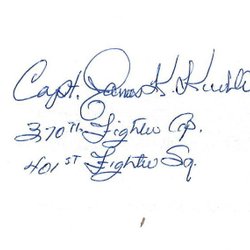 Capt. James K. Kunkle
370th Fighter Gp.
401st Fighter Sq.